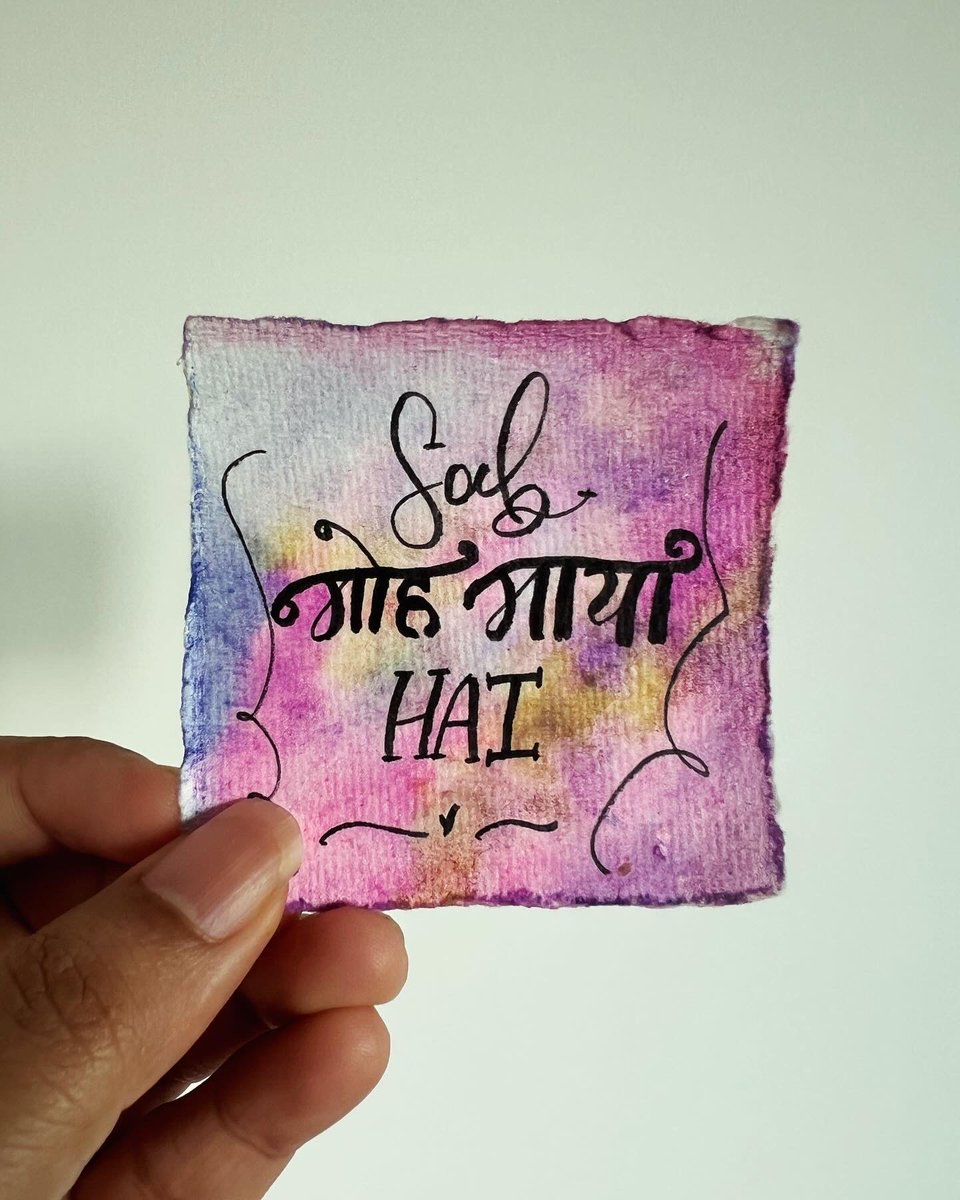 Sab
मोह माया
HAI